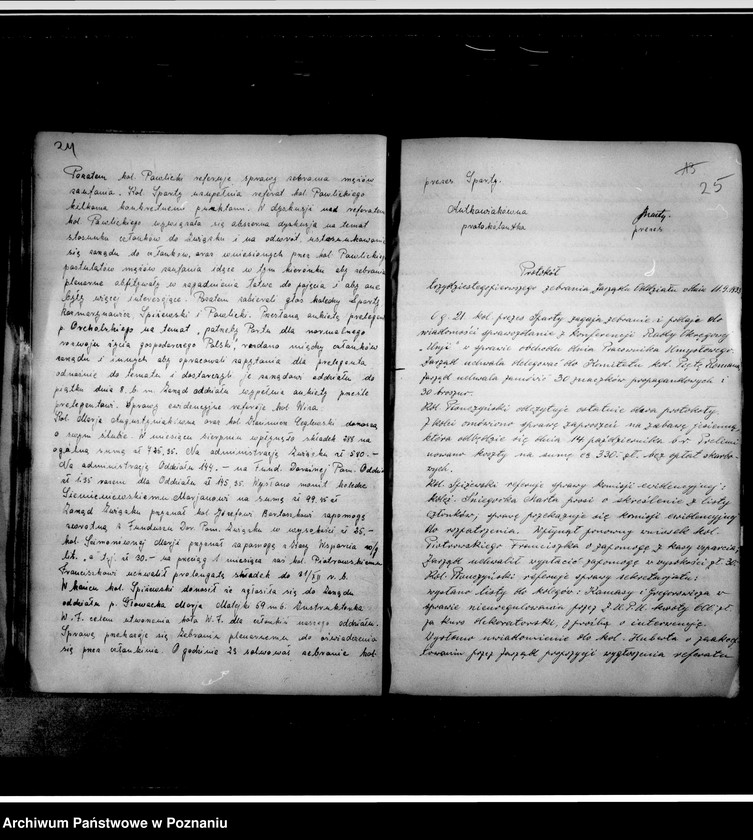 24
Pozatem kol. Pawlicki referuje sprawę zebrania mężów
zaufania. Kol. Sparty uzupełnia referat kol. Pawlickiego
kilkoma konkretnemi punktami. W dyskusji nad referatem
kol. Pawlickiego wywiązała się obszerna dyskusja na temat
stosunku członków do Związku i na odwrót ustosunkowania
się zarządu do członków, oraz wniesionych przez kol. Pawlickiego
postulatów mężów zaufania idące w tym kierunku aby zebrania
plenarne obfitowały w zagadnienia łatwe do pojęcia i aby one
były więcej interesujące. Pozatem zabierali głos koledzy Sparty
Spiżewski i Pawlicki. Przesłaną ankietę prelegenta
p. na temat "potrzeby Portu dla normalnego
rozwoju życia gospodarczego Polski" rozdano między członków
zarządu i innych aby opracowali zapytania dla prelegenta
odnośnie do tematu i dostarczyli je zarządowi oddziału do
piątku dnia 8. b. m. Zarząd oddziału wypełnia ankiety prześle
prelegentowi. Sprawy ewidencyjne referuje kol. Wiza
Kol. Marja oraz kol. Cegłowski donoszą
o swym ślubie. W miesiącu sierpniu wpłynęło składek 288 na
ogólną sumę zł 725,35. Na administrację Związku zł 580.-
Na administrację Oddziału 144.- na Fund. Doraźnej Pom. Oddz.
zł 1.35 razem dla Oddziału zł 145,35. Wysłano monit koledze
Marjanowi na sumę zł 99.45 zł
Zarząd Związku przyznał kol. Józefowi Bartoszkowi zapomogę
zwrotną z Funduszu Dor. Pom. Związku w wysokości zł 25.-
kol. Marji przyznał zapomogę z Kasy Wsparcia
zł 30.- na przeciąg 1 miesiąca zaś kol. Piotrowskiemu
Franciszkowi uchwalił prolongatę składek do 31/XII r. b.
W końcu kol. Spiżewski donosił że zgłosiła się do Zarządu
oddziału p. Głowacka Marja Małeckiego 69 m 6. instruktorka
W. F. celem utworzenia koła W. F. dla członkiń naszego oddziału.
Sprawę przekazuje się Zebraniu plenarnemu do oświadczenia
się przez członkinie. O godzinie 23 solwował zebranie kol.
25
prezes Sparty.
Lutkowiakówna
protokolantka
Sparty.
prezes
Protokół
trzydziestegopierwszego zebrania Zarządu Oddziału dnia 11.9.1933
O g. 21 kol. prezes Sparty zagaja zebranie i podaje do
wiadomości sprawozdanie z Konferencji Rady Okręgowej
"Unji" w sprawie obchodu dnia Pracownika Umysłowego.
Zarząd uchwala delegować do Komitetu kol. Romana
Zarząd uchwala zamówić 30 znaczków propagandowych i
30 broszur.
Kol. Flinczyński odczytuje ostatnie dwa protokóły.
Z kolei omówiono sprawę zaproszeń na zabawę jesienną,
która odbędzie się dnia 14 października b r. Prelimi
nowano koszty na sumę ca 330.- zł. bez opłat skarbo-
wych.
Kol. Spiżewski referuje sprawy komisji ewidencyjnej:
koleż. Śniegocka Marta prosi o skreślenie z listy
członków, sprawę przekazuje się komisji ewidencyjnej
do rozpatrzenia. Wpłynął ponowny wniosek kol.
Piotrowskiego Franciszka o zapomogę z kasy wsparcia;
Zarząd uchwalił wypłacić zapomogę w wysokości zł. 35.-
Kol. Flinczyński referuje sprawy sekretarjatu:
wysłano listy do kolegów: Ramasy i Grygorowicza w
sprawie nieuregulowania przez Z.U.P.U. kwoty 600 zł.
za kurs z prośbą o interwencję.
Wysłano uwiadomienie do kol. Huberta o zaakcep
towaniu przez Zarząd propozycji wygłoszenia referatu
Archiwum Państwowe w Poznaniu